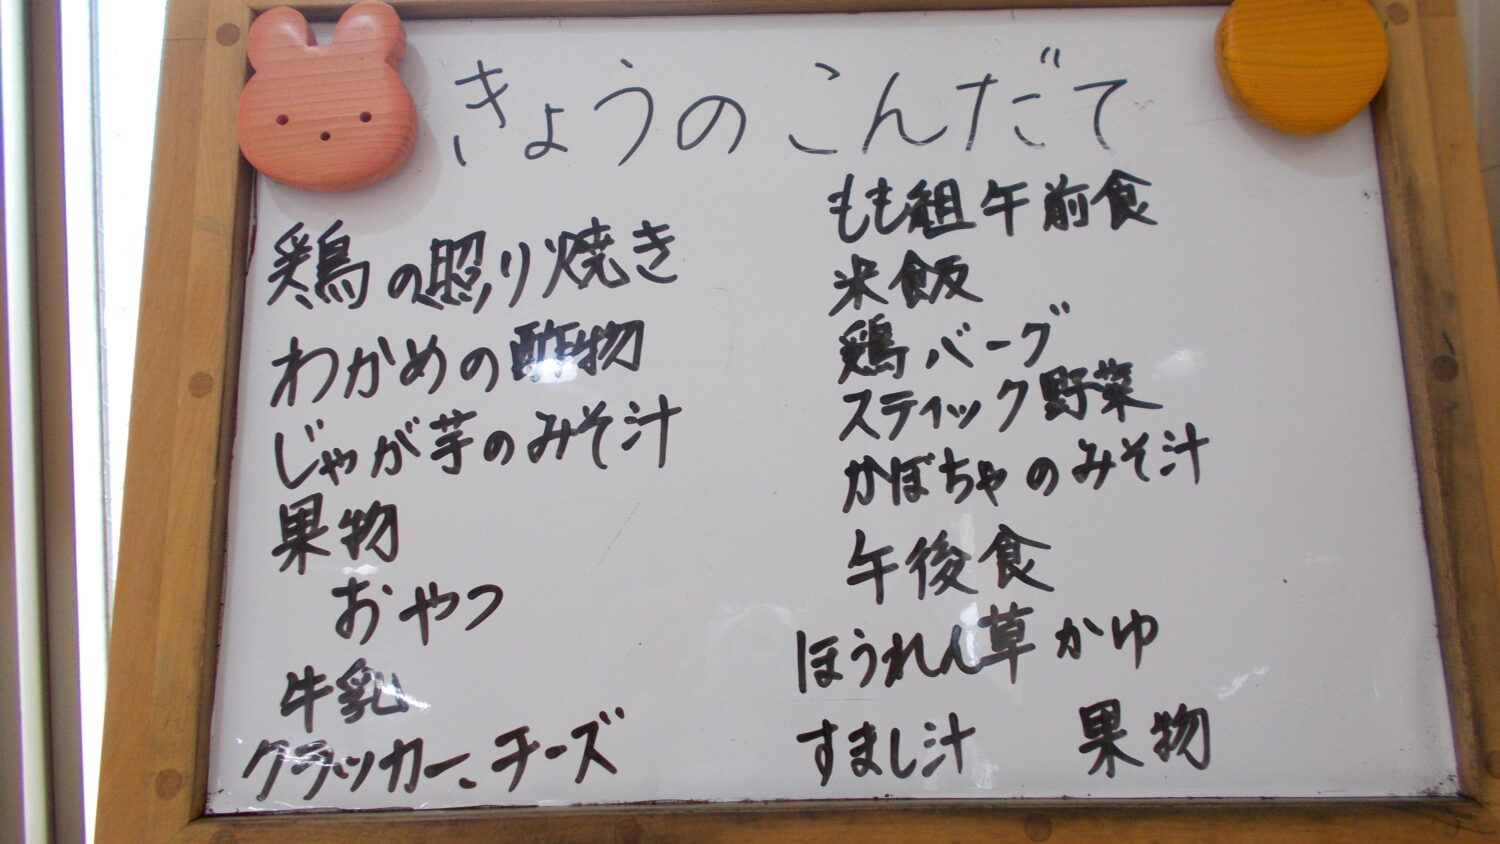 きょうのこんだて
鶏の照り焼き
わかめの酢物
じゃが芋のみそ汁
果物
おやつ
牛乳
クラッカー、チーズ
もも組午前食
米飯
鶏バーグ
スティック野菜
かぼちゃのみそ汁
午後食
ほうれん草かゆ
すまし汁　果物